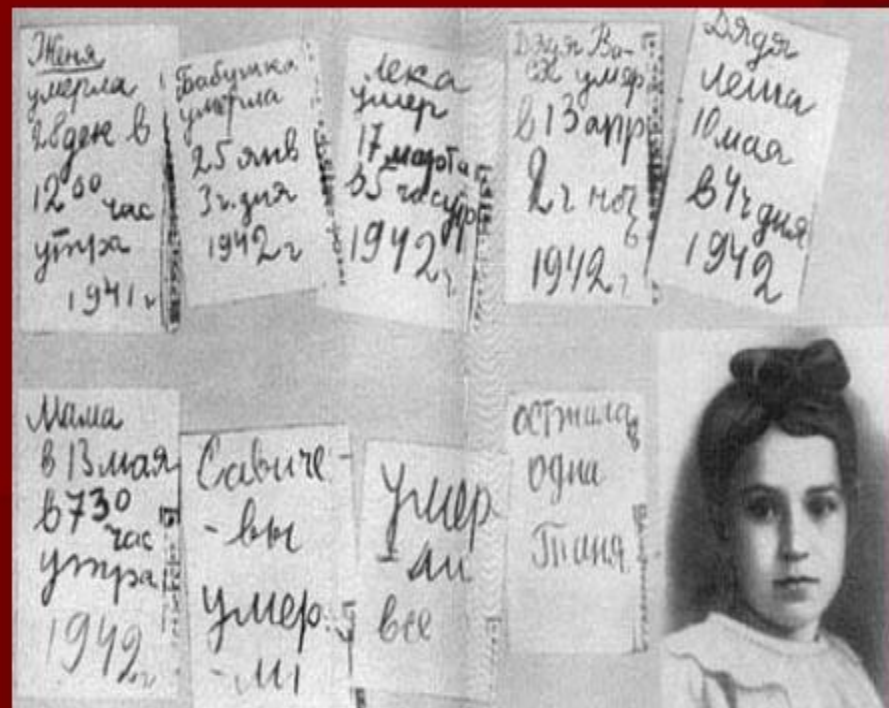 Женя
умерла
28 дек в
12⁰⁰ час
утра
1941 г
Бабушка
умерла
25 янв
3 ч. дня
1942 г
Лека
умер
17 марта
в 5 час утр
1942 г
Дядя Ва-
ся умер
в 13 апр
2 ч ноч
1942 г
Дядя
Леша
10 мая
в 4 ч дня
1942
Мама
в 13 мая
в 7 30
час
утра
1942 г
Савиче-
-вы
умер-
-ли
умер
-ли
все
осталась
одна
Таня